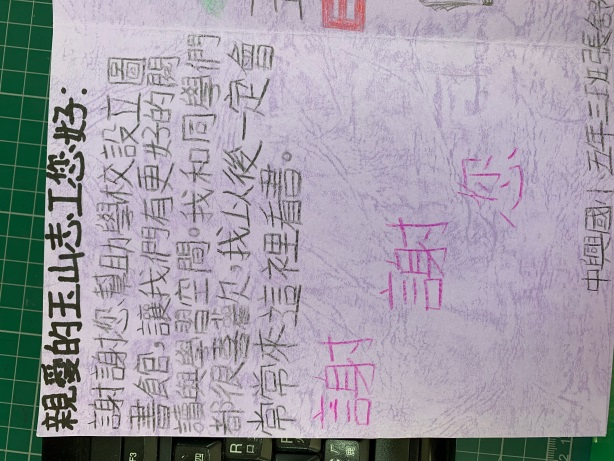 親愛的玉山志工您好:
謝謝您幫助學校設立圖
書館,讓我們有更好的閱
讀與學習空間。我和同學們
都很喜歡,我以後一定會
常常來這裡看書。
謝謝您
中興國小 五年三班張